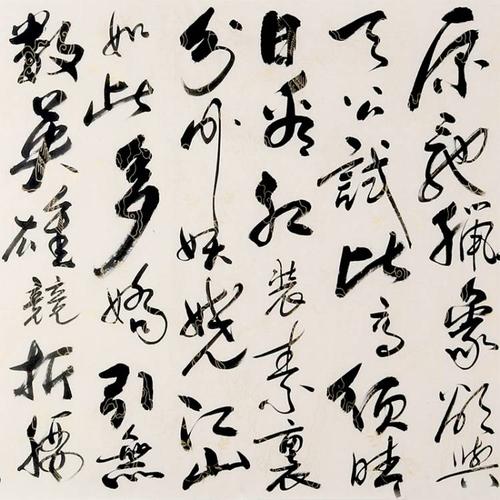 原馳蠟象欲與
天公試比高須晴
日看紅裝素裹
分外妖嬈江山
如此多嬌引無
數英雄競折腰